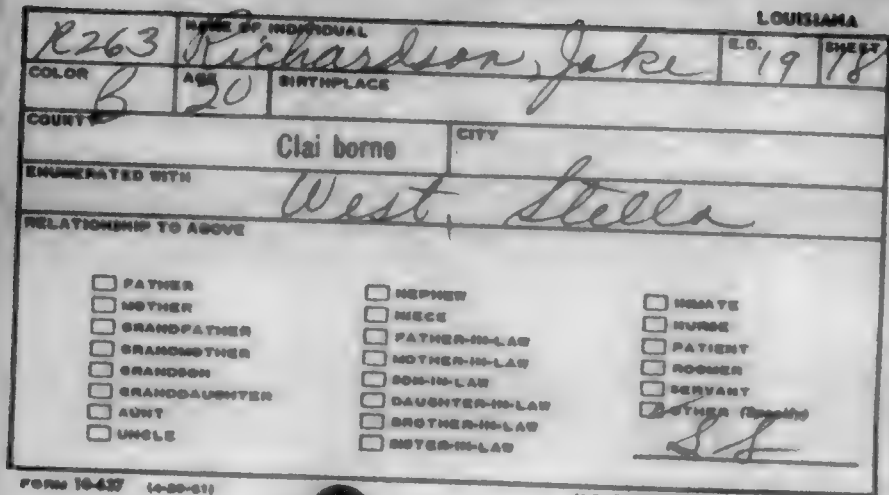 LOUISIANA
R263 NAME OF INDIVIDUAL Richardson, Jake E.D. 19 SHEET 18
COLOR B AGE 20 BIRTHPLACE
COUNTY Clai borne CITY
ENUMERATED WITH West, Stella
RELATIONSHIP TO ABOVE
FATHER
MOTHER
GRANDFATHER
GRANDMOTHER
GRANDSON
GRANDDAUGHTER
AUNT
UNCLE
NEPHEW
NIECE
FATHER-IN-LAW
MOTHER-IN-LAW
SON-IN-LAW
DAUGHTER-IN-LAW
BROTHER-IN-LAW
SISTER-IN-LAW
INMATE
NURSE
PATIENT
ROOMER
SERVANT
OTHER (Specify)
SS
FORM 10-637 (4-20-61)